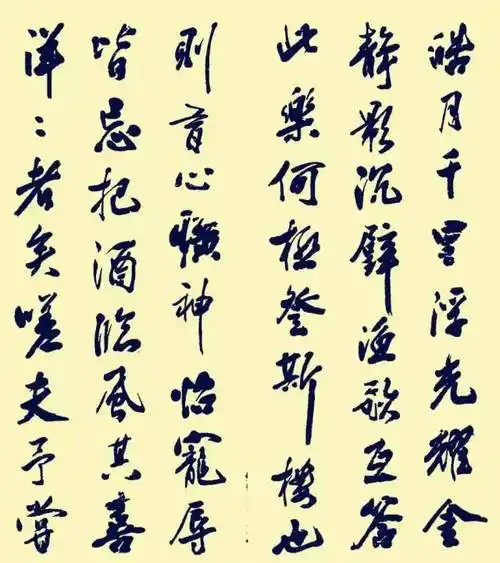 皓月千里浮光耀金
靜影沉璧漁歌互答
此樂何極登斯樓也
則有心曠神怡寵辱
皆忘把酒臨風其喜
洋〻者矣嗟夫予嘗